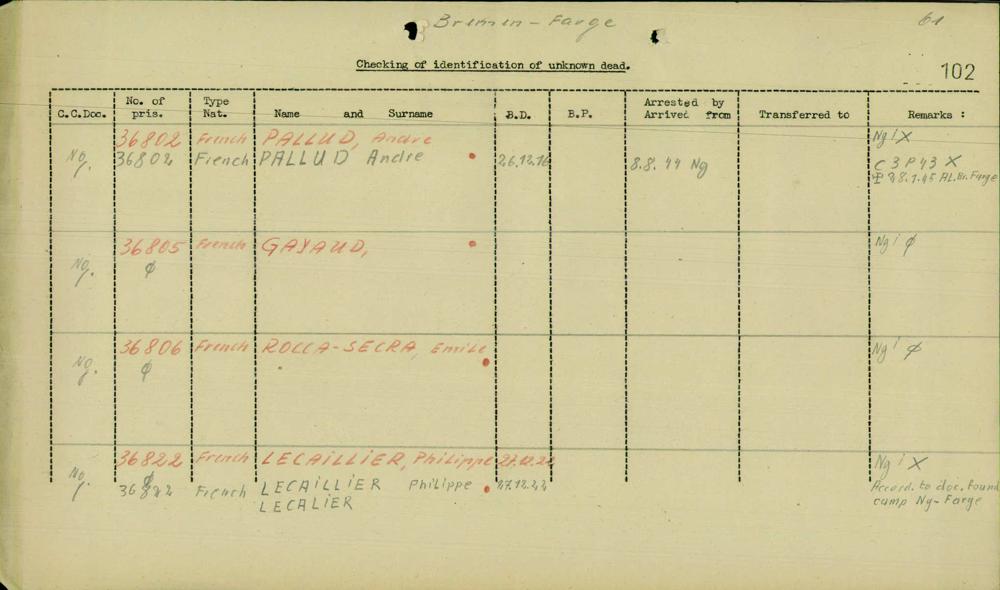 Bremen - Farge 61
Checking of identification of unknown dead.
102
C.C.Doc. No. of pris. Type Nat. Name and Surname B.D. B.P. Arrested by Arrived from Transferred to Remarks :
36802 French PALLUD, Andre Ng i X
Ng. 36802 French PALLUD Andre 26.12.16 8.8.44 Ng C 3 P 43 X
28.1.45 Al.Br. Farge
36805 French GAYAUD, Ng i ϕ
Ng. ϕ
36806 French ROCCA-SECRA, Emile Ng i ϕ
Ng. ϕ
36822 French LECAILLIER, Philippe 27.12.22 Ng i X
Ng. 36822 French LECAILLIER Philippe 27.12.22 Accord. to doc. found
LECALIER camp Ng- Farge